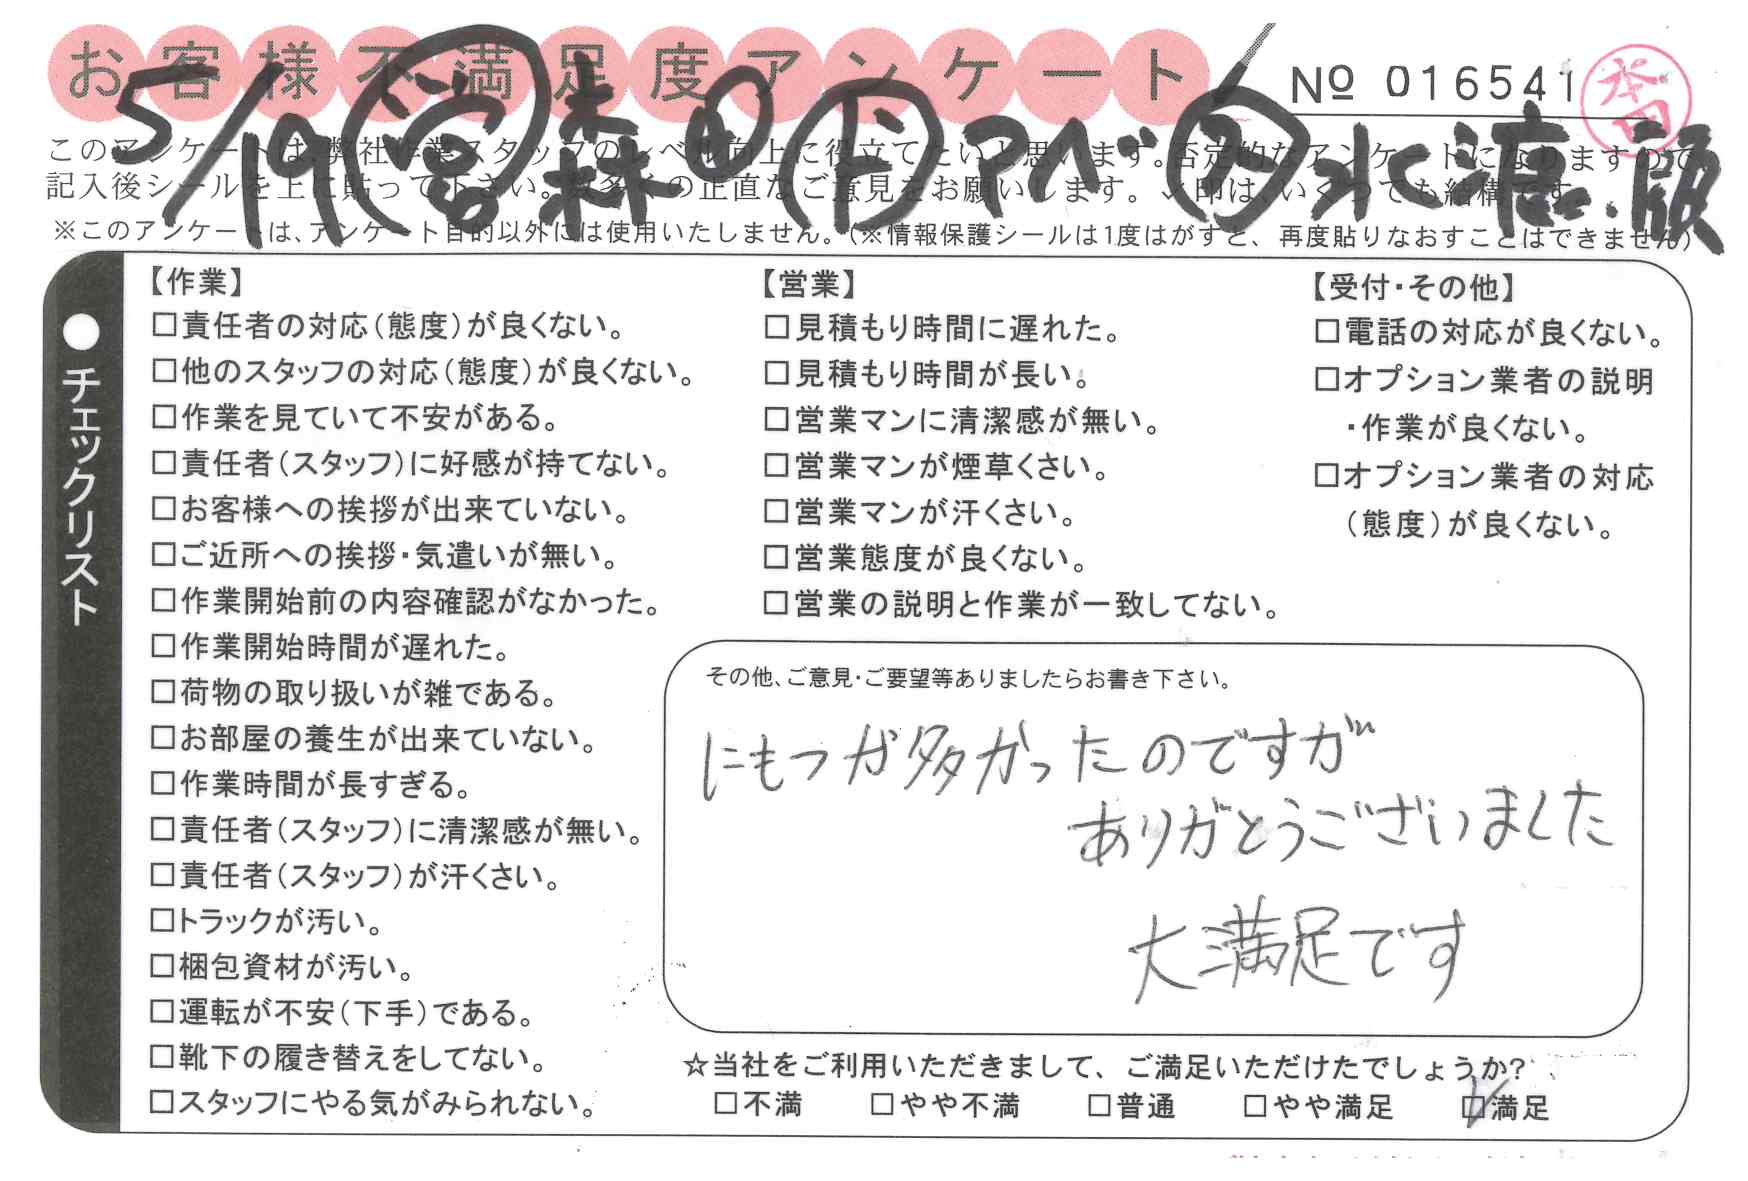 お客様不満足度アンケート
№ 016541
本田
5/19 宮 森田 下 アベ
このアンケートは、弊社作業スタッフのレベル向上に役立てたいと思います。否定的なアンケートになりますので
記入後シールを上に貼って下さい。数多くの正直なご意見をお願いします。✓印は、いくつでも結構です。
※このアンケートは、アンケート目的以外には使用いたしません。(※情報保護シールは1度はがすと、再度貼りなおすことはできません)
●チェックリスト
【作業】
□責任者の対応(態度)が良くない。
□他のスタッフの対応(態度)が良くない。
□作業を見ていて不安がある。
□責任者(スタッフ)に好感が持てない。
□お客様への挨拶が出来ていない。
□ご近所への挨拶・気遣いが無い。
□作業開始前の内容確認がなかった。
□作業開始時間が遅れた。
□荷物の取り扱いが雑である。
□お部屋の養生が出来ていない。
□作業時間が長すぎる。
□責任者(スタッフ)に清潔感が無い。
□責任者(スタッフ)が汗くさい。
□トラックが汚い。
□梱包資材が汚い。
□運転が不安(下手)である。
□靴下の履き替えをしてない。
□スタッフにやる気がみられない。
【営業】
□見積もり時間に遅れた。
□見積もり時間が長い。
□営業マンに清潔感が無い。
□営業マンが煙草くさい。
□営業マンが汗くさい。
□営業態度が良くない。
□営業の説明と作業が一致してない。
【受付・その他】
□電話の対応が良くない。
□オプション業者の説明
・作業が良くない。
□オプション業者の対応
(態度)が良くない。
その他、ご意見・ご要望等ありましたらお書き下さい。
にもつが多かったのですが
ありがとうございました
大満足です
☆当社をご利用いただきまして、ご満足いただけたでしょうか?
□不満 □やや不満 □普通 □やや満足 ☑満足